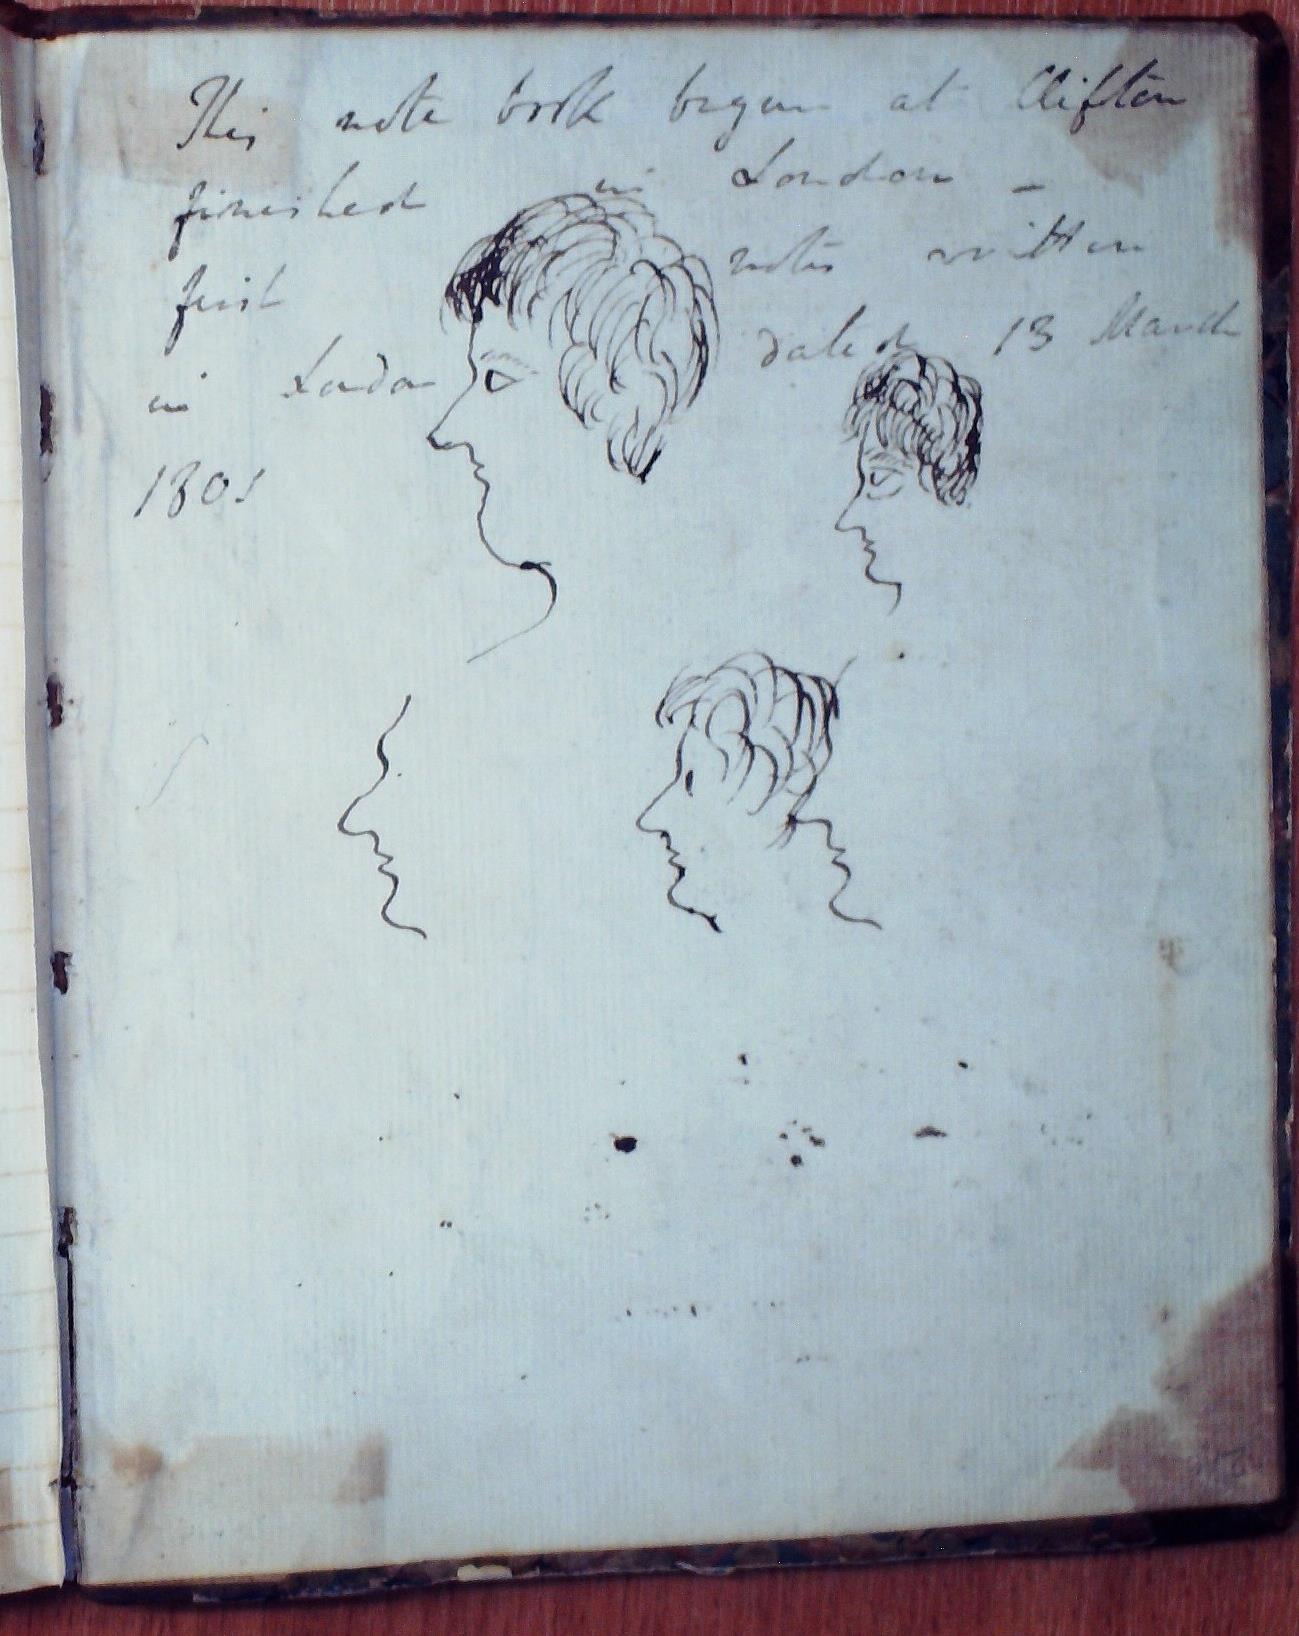 This note book begun at Clifton
finished in London –
first notes written
in London dated 13 March
1801